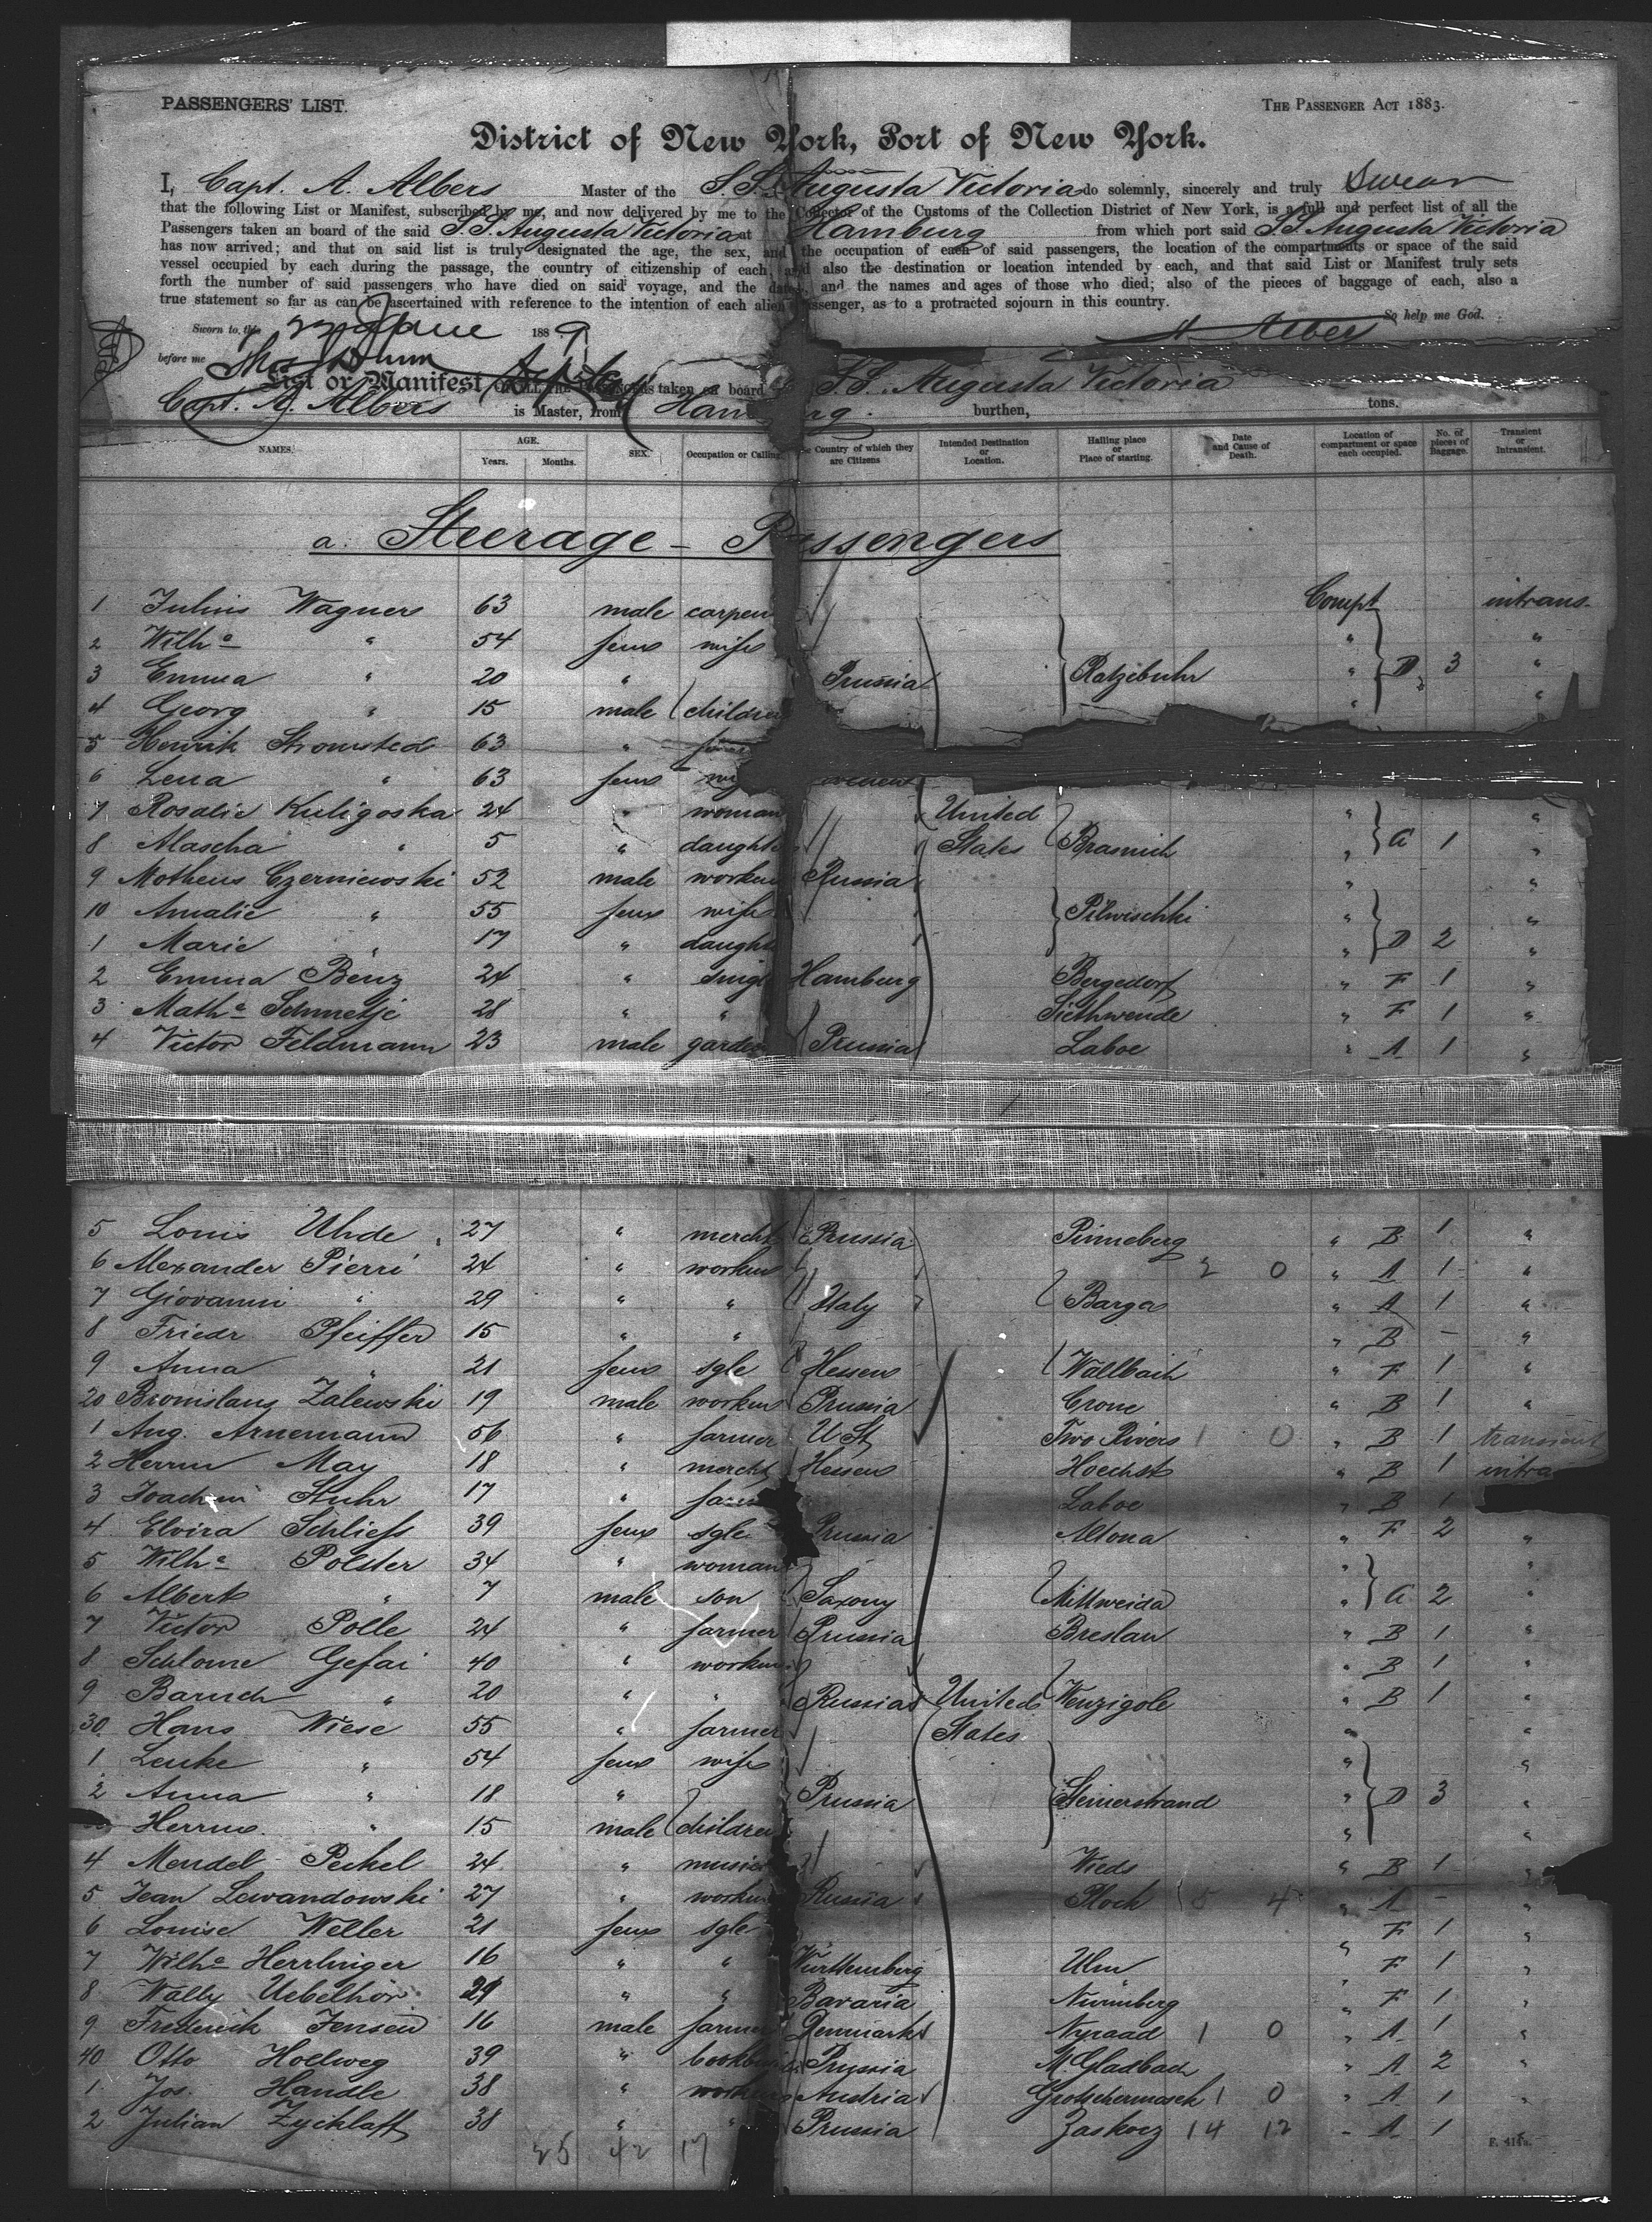 PASSENGERS' LIST.
THE PASSENGER ACT 1883.
District of New York, Port of New York.
I, Capt. A. Albers Master of the S.S. Augusta Victoria do solemnly, sincerely and truly swear
that the following List or Manifest, subscribed by me, and now delivered by me to the Collector of the Customs of the Collection District of New York, is a full and perfect list of all the
Passengers taken on board of the said S.S. Augusta Victoria at Hamburg from which port said S.S. Augusta Victoria
has now arrived; and that on said list is truly designated the age, the sex, and the occupation of each of said passengers, the location of the compartments or space of the said
vessel occupied by each during the passage, the country of citizenship of each, and also the destination or location intended by each, and that said List or Manifest truly sets
forth the number of said passengers who have died on said voyage, and the dates, and the names and ages of those who died; also of the pieces of baggage of each, also a
true statement so far as can be ascertained with reference to the intention of each alien passenger, as to a protracted sojourn in this country.
So help me God.
Sworn to, this June 1889 A Albers
before me
List or Manifest taken on board S.S. Augusta Victoria
Capt. A. Albers is Master, from Hamburg. burthen, tons.
NAMES. AGE. Years. Months. SEX. Occupation or Calling. Country of which they are Citizens Intended Destination or Location. Hailing place or Place of starting. Date and Cause of Death. Location of compartment or space each occupied. No. of pieces of Baggage. Transient or Intransient.
a. Steerage - Passengers
1 Julius Wagner 63 male carpen Compt intrans.
2 Wilhe " 54 fem wife " "
3 Emma " 20 " Prussia Ratzebuhr " D 3 "
4 Georg " 15 male children " "
5 Henrik Stromsted 63 "
6 Lena " 63 fem
7 Rosalie Kuligoska 24 " woman United " "
8 Mascha " 5 " daught States " A 1 "
9 Motheus Czerniewski 52 male worker Russia " "
10 Amalie " 55 fem wife Pilwischki " "
1 Marie " 17 " daught " D 2 "
2 Emma Benz 24 " singl Hamburg Bergedorf " F 1 "
3 Mathe Schmetje 28 " " Siethwende " F 1 "
4 Victor Feldmann 23 male garden Prussia Laboe " A 1 "
5 Louis Uhde 27 " mercht Prussia Pinneberg " B 1 "
6 Alexander Pierri 24 " worker 2 0 " A 1 "
7 Giovanni " 29 " " Italy Barga " A 1 "
8 Friedr. Pfeiffer 15 " " " B - "
9 Anna " 21 fem sgle Hessen Wallbach " F 1 "
20 Bronislaus Zalewski 19 male worker Prussia Crone " B 1 "
1 Aug. Arnemann 56 " farmer U St Two Rivers 1 0 " B 1 transient
2 Herm May 18 " mercht Hessen Hoechst " B 1 intra
3 Joachim Stuhr 17 " farm Laboe " B 1
4 Elvira Schliefs 39 fem sgle Prussia Altona " F 2 "
5 Wilhe Polster 34 " woman " "
6 Albert " 7 male son Saxony Mittweida " A 2 "
7 Victor Polle 24 " farmer Prussia Breslau " B 1 "
8 Schlome Gefai 40 " worker " B 1
9 Baruch " 20 " " Russia United Wenzigole " B 1 "
30 Hans Wiese 55 " farmer States. " "
1 Lenke " 54 fem wife " "
2 Anna " 18 " Prussia Steinerstrand " D 3 "
Herm " 15 male children " "
4 Mendel Peckel 24 " music Wieds " B 1 "
5 Jean Lewandowski 27 " worker Russia Plock 5 4 " A - "
6 Louise Weller 21 fem sgle " F 1 "
7 Wilhe Herrlinger 16 " " Württemberg Ulm F 1 "
8 Wally Uebelhör 29 " " Bavaria Nürnberg " F 1 "
9 Frederick Jensen 16 male farmer Denmark Nyraad 1 0 " A 1 "
40 Otto Hollweg 39 " bookbin Prussia M. Gladbach " A 2 "
1 Jos. Handle 38 " worker Austria Grotschermosch 1 0 " A 1 "
2 Julian Zychlaff 38 " " Prussia Zaskocz 14 12 " A 1
25 42 17